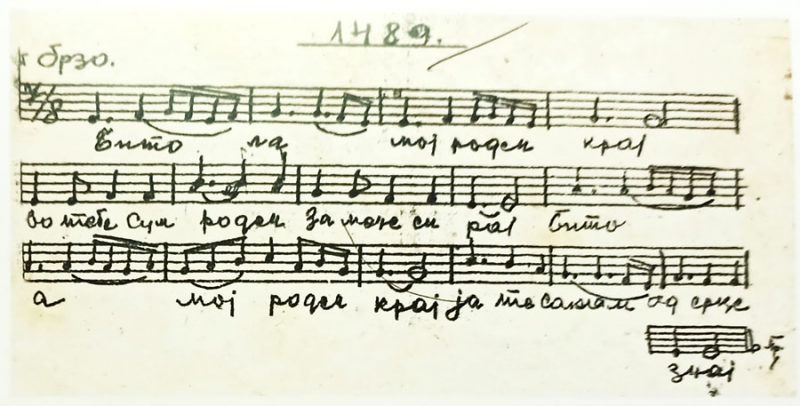 1489.
брзо.
7/8
Бито ла мој роден крај
во тебе сум роден за мене си рај Бито
а мој роден крај ја те сакам од срце
знај